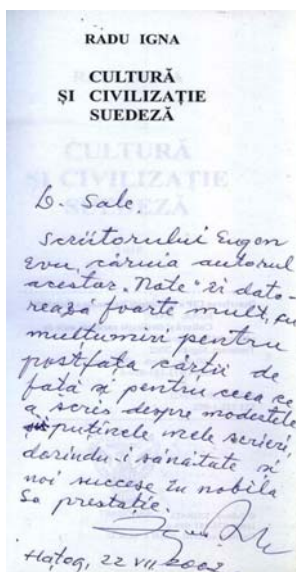 RADU IGNA
CULTURĂ
ȘI CIVILIZAȚIE
SUEDEZĂ
D. Sale,
Scriitorului Eugen
Evu, căruia autorul
acestor "Note" îi dato-
rează foarte mult, cu
mulțumiri pentru
postfața cărții de
față și pentru ceea ce
a scris despre modestele
puținele mele scrieri,
dorindu-i sănătate și
noi succese în nobila
Sa prestație.
Hațeg, 22 VII 2002